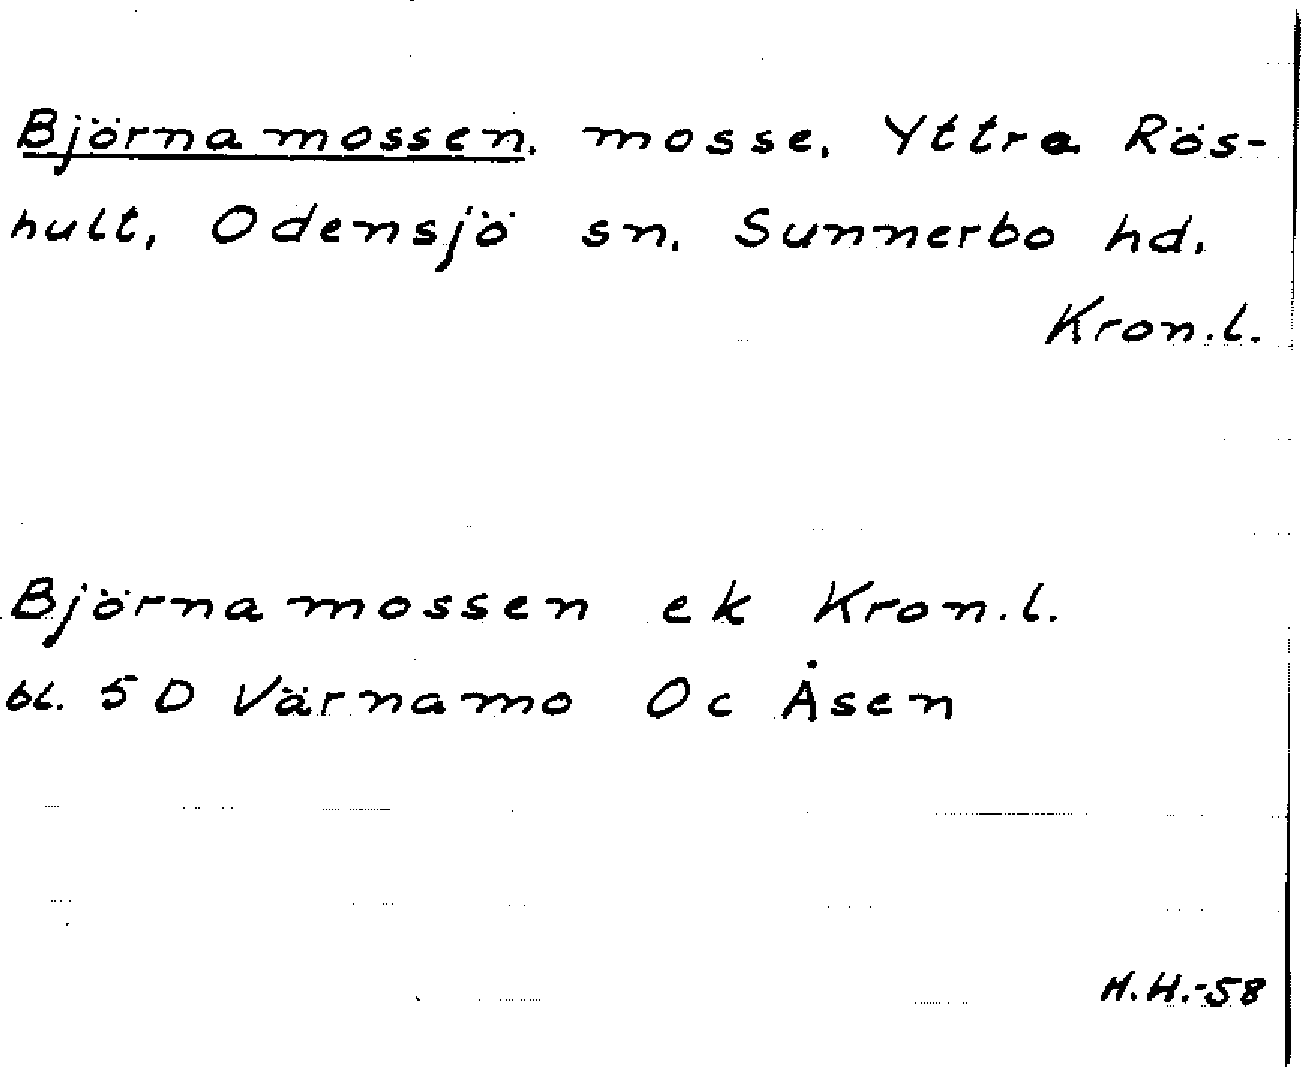 Björnamossen, mosse, Yttre Rös-
hult, Odensjö sn, Sunnerbo hd.
Kron.l.
Björnamossen ek Kron.l.
bl. 5 D Värnamo Oc Åsen
H.H.-58